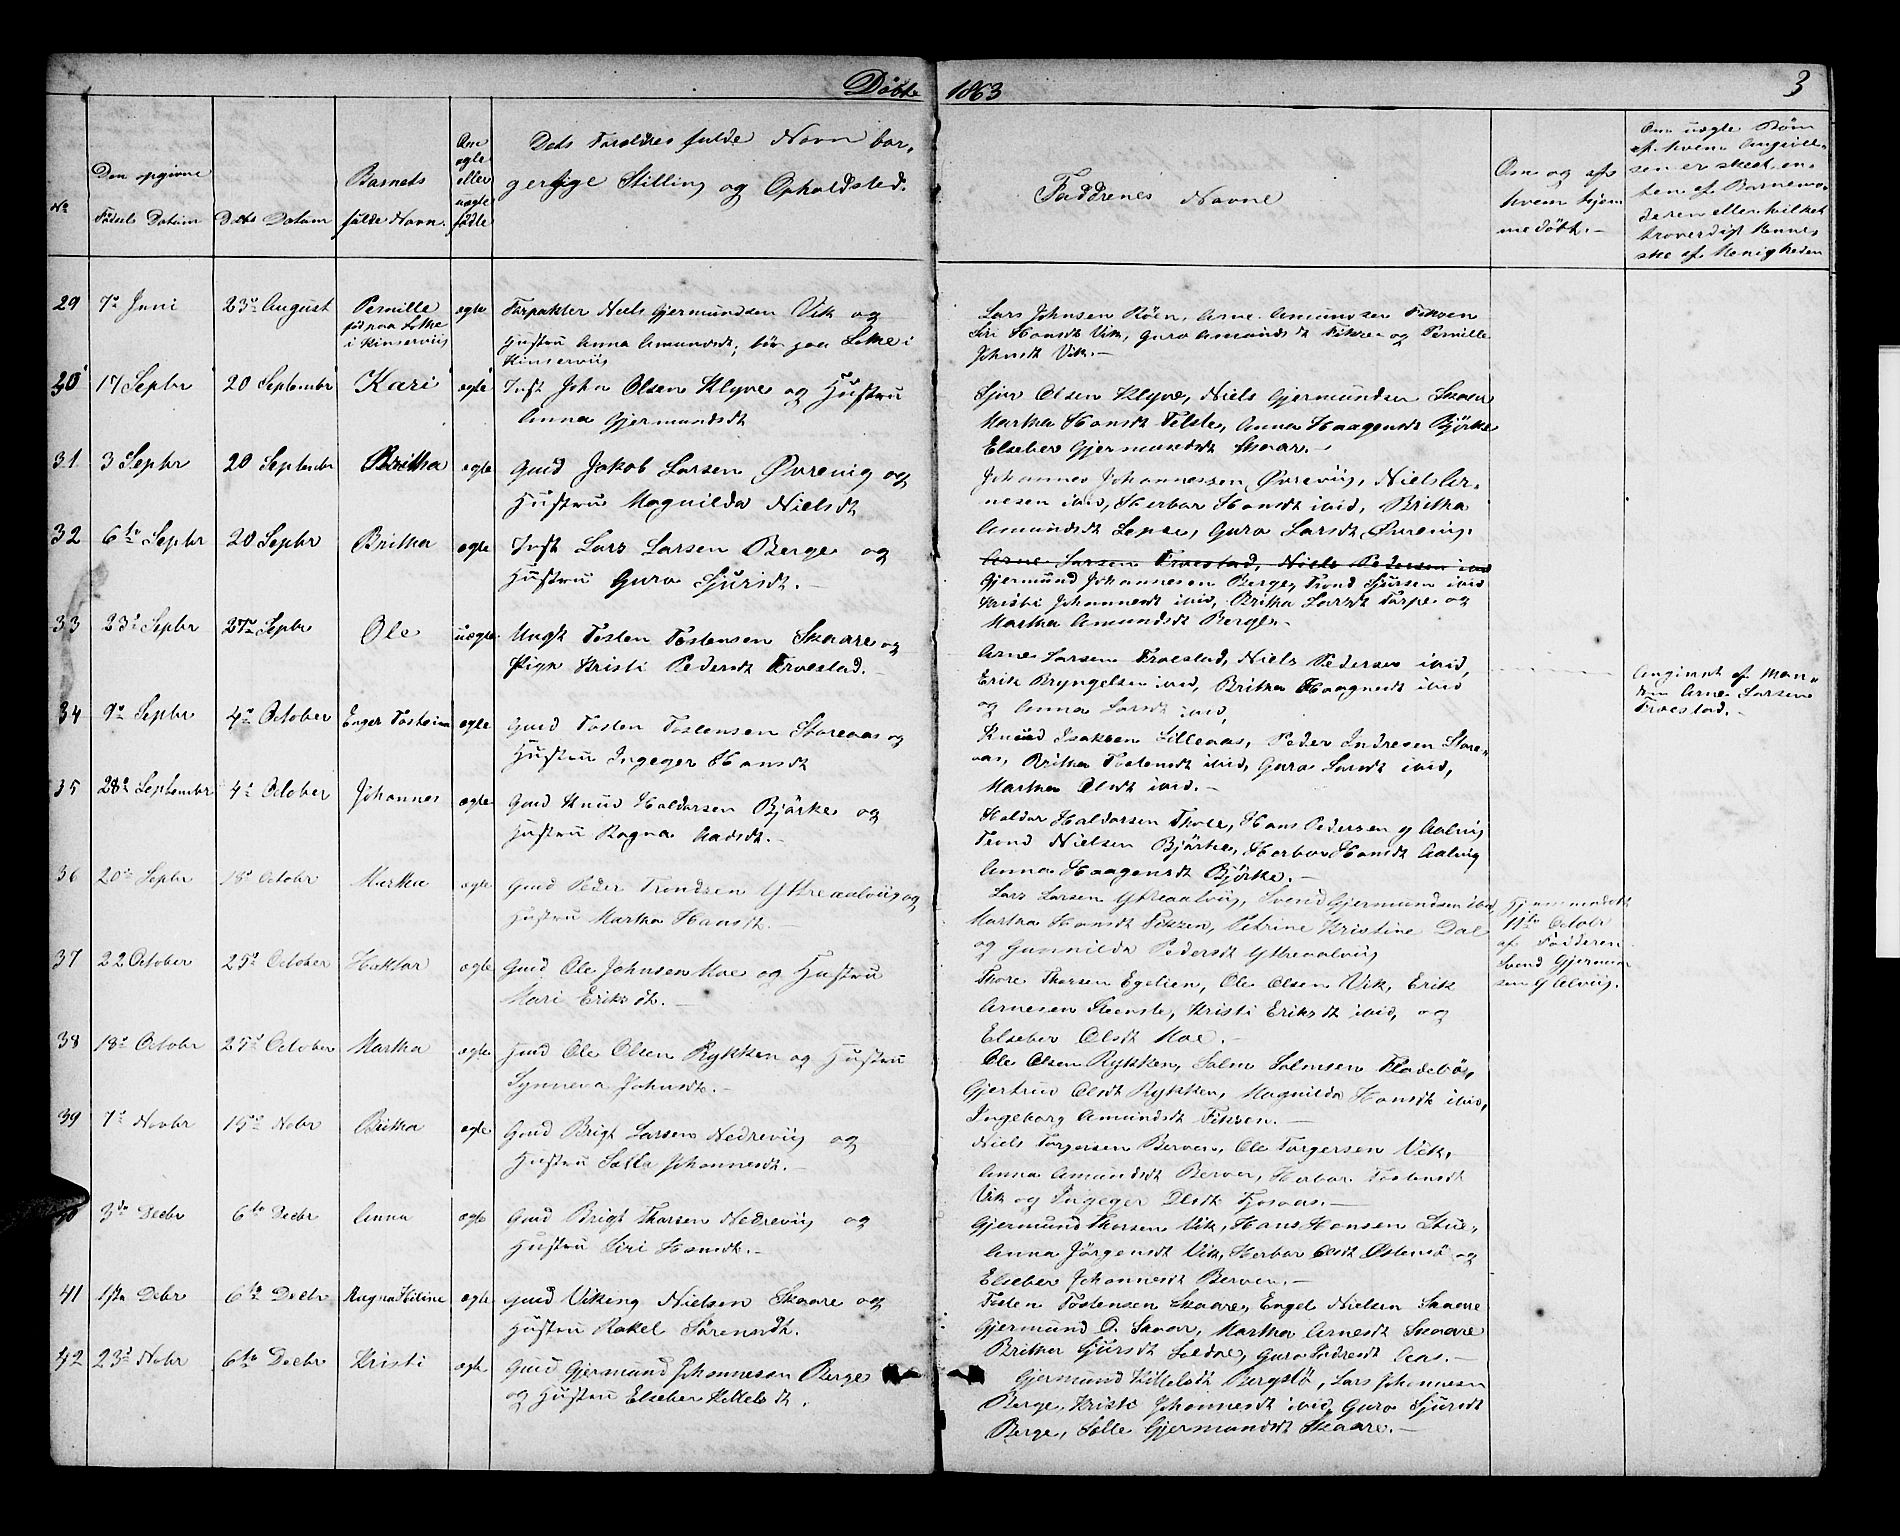 Döbte 1863 3
No
Den opgivne Födsels Datum
Dåbs Datum
Barnets fulde Navn.
Om ægte eller uægte födte
Dets Forældres fulde Navn borgerlige Stilling og Opholdsted.
Faddrenes Navne
Om og af hvem hjemmedöbt.-
Om uægte Börn af hvem Angivelsen er skeet, enten af Barnemoderen eller hvilket troverdigt Menneske af Menigheden
29 7de Juni 23de August Pernille ægte Forpakter Niels Gjermundsen Vik og
födt paa Lothe
i Kinserviig
Hustru Anna Amundsdt; bor paa Lothe i
Kinserviig
Lars Johnsen Röen, Arne Amundsen Fiksen
Siri Hansdt Vik, Guro Amundsdt Fiksen og Pernille
Johnsdt Vik.-
30 17 Septbr 20 Septembr Kari ægte Inst John Olsen Klyve og Hustru
Anna Gjermundsdt
Sjur Olsen Klyve, Niels Gjermundsen Skaar
Martha Hansdt Tolste, Anna Haagensdt Björke
Elseber Gjermundsdt Skaar.-
31 3 Septbr 20 Septembr Britha ægte Gmd Jakob Larsen Övrevig og
Hustru Magnilda Nielsdt
Johannes Johannessen Övreviig, Niels Arnesen
ibid, Herbor Hansdt ibid, Britha
Amundsdt Lepse, Guro Larsdt Övreviig.
32 6te Septbr 20 Septbr Britha ægte Inst Lars Larsen Berge og
Hustru Guro Sjursdt.-
Arne Larsen Troestad, Niels Pedersen ibid
Gjermund Johannesen Berge, Trond Sjursen ibid
Kristi Johannesdt ibid, Britha Larsdt Torpe og
Martha Amundsdt Berge.-
33 23de Septbr 27de Septbr Ole uægte Ungk Tosten Tostensen Skaare og
Pige Kristi Pedersdt Troestad.-
Arne Larsen Troestad, Niels Pedersen ibid,
Erik Bryngelsen ibid, Britha Haagensdt ibid
og Anna Larsdt ibid,
Angivet af Manden
Arne Larsen
Troestad.-
34 9de Septbr 4de October Enger Tosteina ægte Gmd Tosten Tostensen Storeaas og
Hustru Ingeger Hansdt
Knud Isaksen Lilleaas, Peder Indresen Storeaas,
Britha Tostensdt ibid, Guro Larsdt ibid,
Martha Olsdt ibid.-
35 28de Septembr 4de October Johannes ægte Gmd Knud Haldorsen Björke og
Hustru Ragna Aadsdt.-
Haldor Haldorsen Thoe, Hans Pedersen y Aalvig
Trond Nielsen Björke, Herbor Hansdt Aalvig
Anna Haagensdt Björke.-
36 20de Septbr 18de Octobr Martha ægte Gmd Peder Trondsen Ytreaalviig og
Hustru Martha Hansdt.-
Lars Larsen Ytreaalviig, Svend Gjermundsen ibid,
Martha Hansdt Fiksen, Petrine Kristine Dal
og Gunnilda Pedersdt Ytreaalviig
Hjemmedöbt
Octobr
af Fadderen
Svend Gjermundsen
Y Alviig.
37 22 October 25de October Haktor ægte Gmd Ole Johnsen Moe og Hustru
Mari Eriksdt.-
Thore Thorsen Egelien, Ole Olsen Vik, Erik
Arnesen Steenstö, Kristi Eriksdt ibid, og
Elseber Olsdt Moe.-
38 18de Octobr 25de October Martha ægte Gmd Ole Olsen Rykken og Hustru
Synneva Johnsdt.-
Ole Olsen Rykken, Salm Salmsen Fladebö,
Gjertrud Olsdt Rykken, Magnilda Hansdt ibid,
Ingeborg Amundsdt Fiksen.-
39 7de Novbr 15de Nobr Britha ægte Gmd Brigt Larsen Nedreviig og
Hustru Salla Johannesdt.-
Niels Torgersen Berven, Ole Torgersen Vik,
Anna Amundsdt Berven, Herbor Tostensdt
Vik og Ingeger Olsdt Fosaas.-
40 3de Decbr 6te Decbr Anna ægte Gmd Brigt Thorsen Nedreviig og
Hustru Siri Hansdt.-
Gjermund Thorsen Vik, Hans Hansen Stue,
Anna Jörgensdt Vik, Herbor Olsdt Östensö og
Elseber Johannesdt Berven.-
41 1ste Debr 6te Decbr Ragna Heline ægte Gmd Viking Nielsen Skaare og
Hustru Rakel Sörensdt.
Tosten Tostensen Skaare, Engel Nielsen Skaare
Gjermund O. Skaar, Martha Arnesdt Skaare
Britha Sjursdt Soldal, Guro Indresdt Aas.-
42 23de Nobr 6te Decbr Kristi ægte Gmd Gjermund Johannesen Berge
og Hustru Elseber Kittelsdt.
Gjermund Kittelsdt Bergstö, Lars Johannesen
Berge, Kristi Johannesdt ibid, Guro Sjursdt
Berge, Salle Gjermundsdt Skaare.-